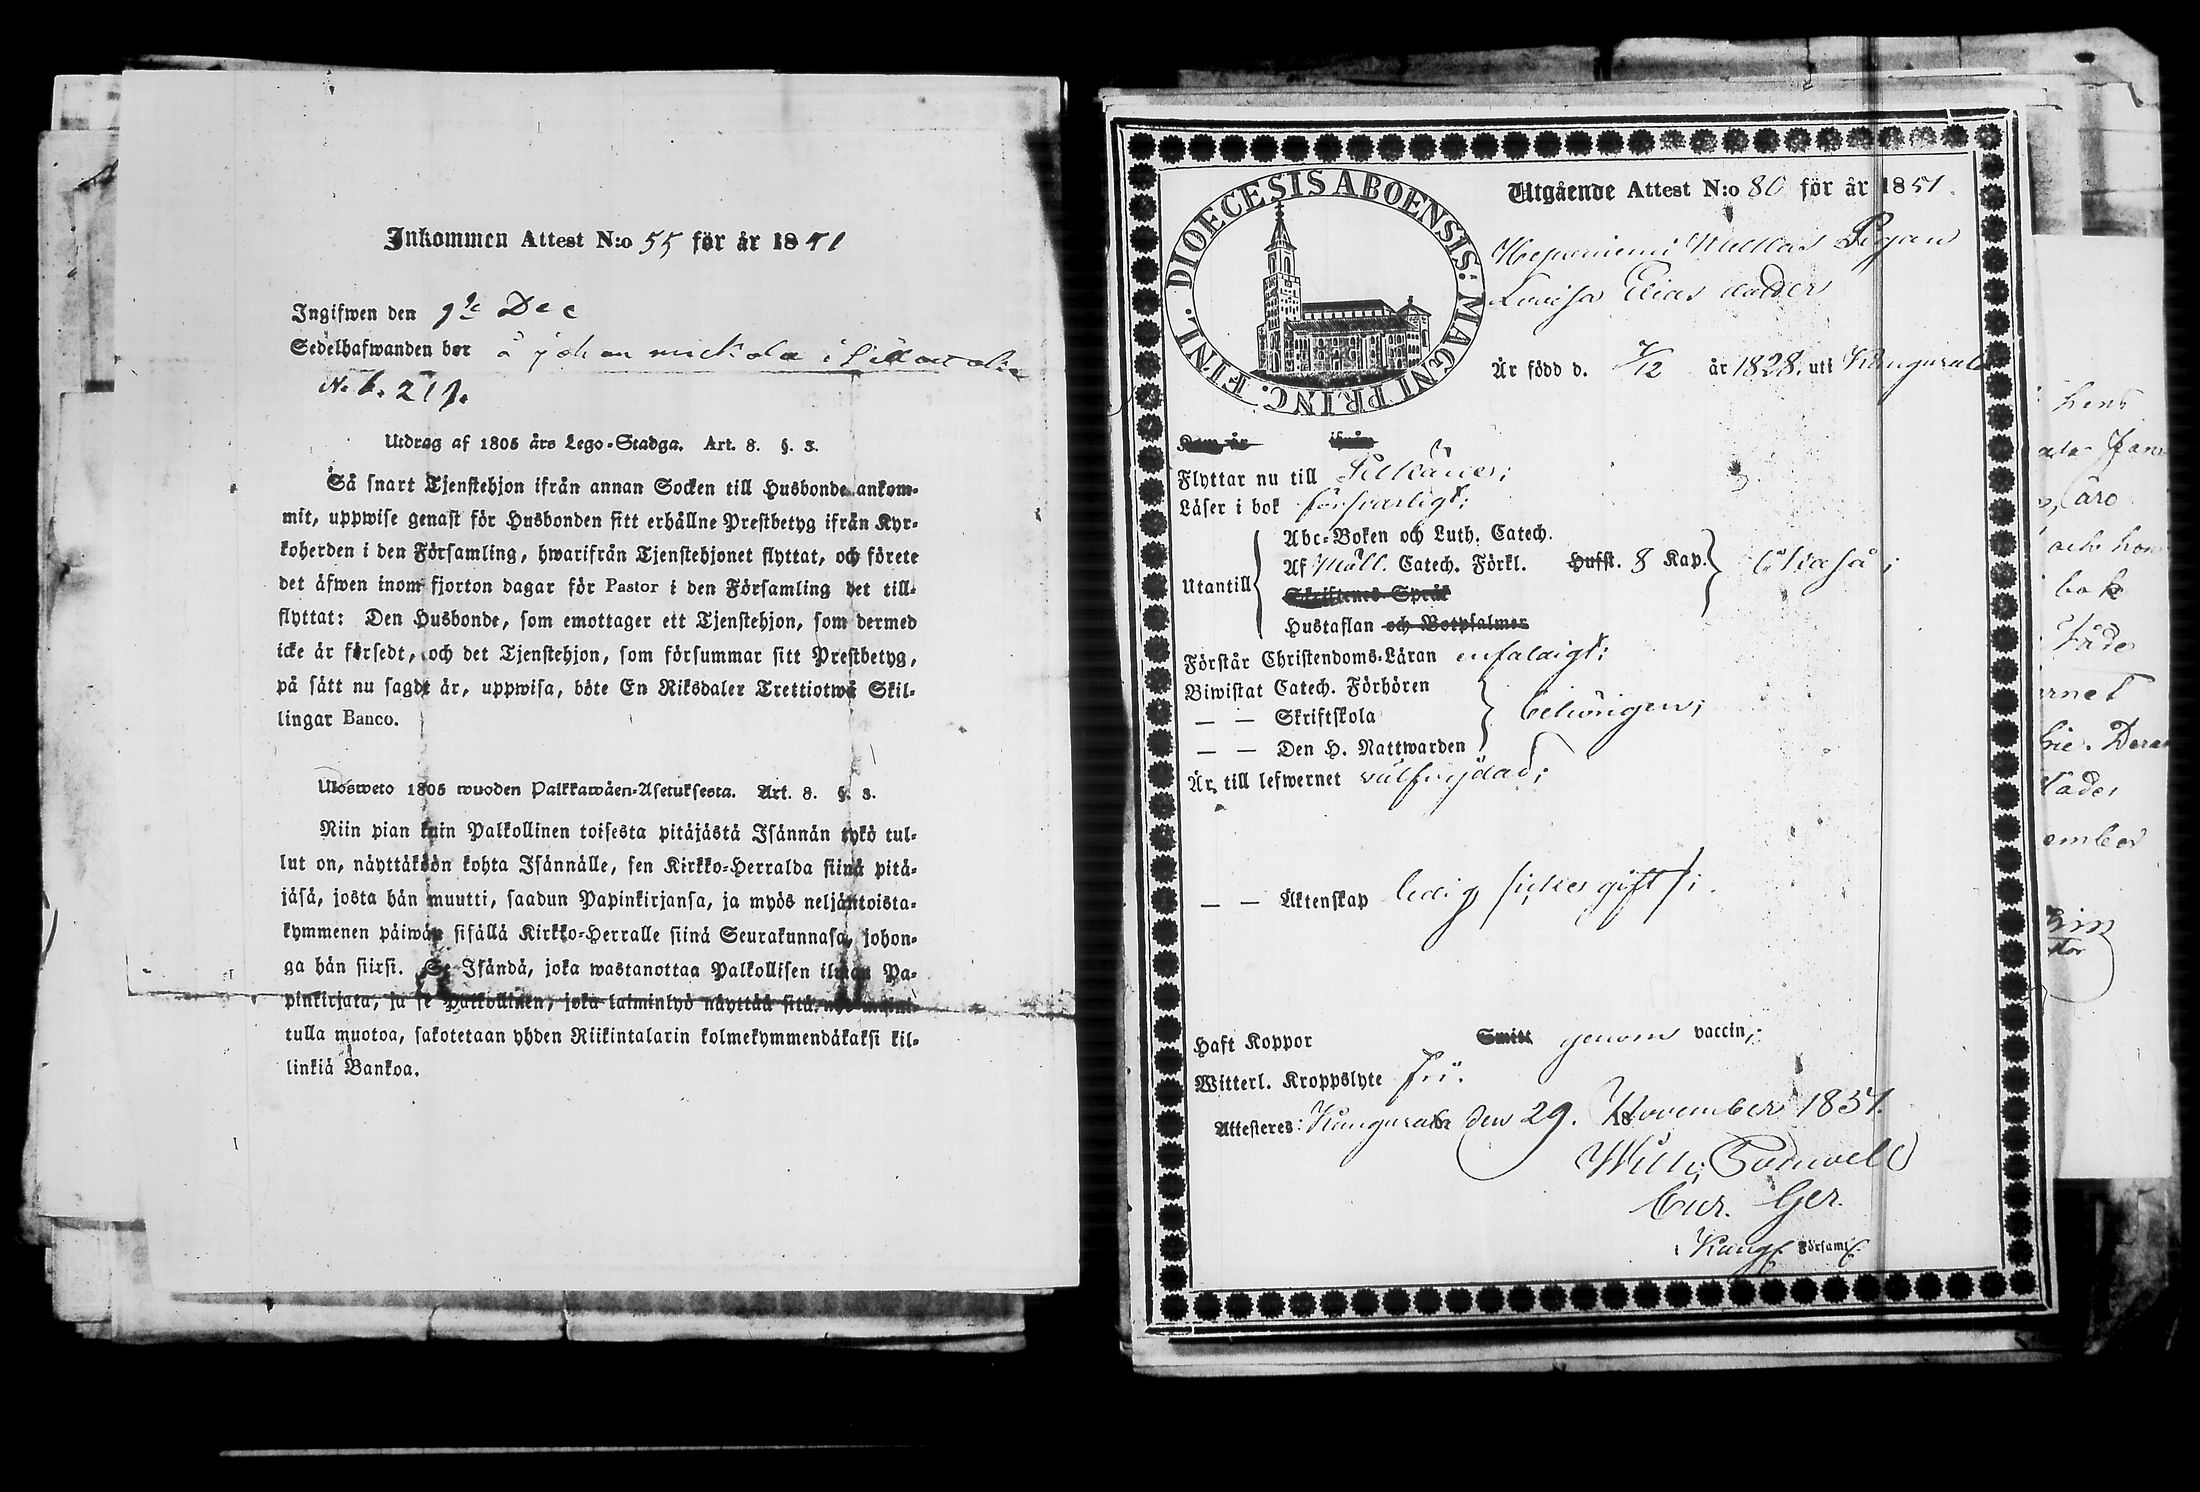 Inkommen Attest N:o 55 för år 1851
Ingifwen den 9de Dec
Sedelhafwanden bor å johan mickola i
N:o 6. 217.
Utdrag af 1805 års Lego-Stadga. Art. 8. §. 3.
Så snart Tjenstehjon ifrån annan Socken till Husbonde ankom-
mit, uppwise genast för Husbonden sitt erhållne Prestbetyg ifrån Kyr-
koherden i den Församling, hwarifrån Tjenstehjonet flyttat, och förete
det äfwen inom fjorton dagar för Pastor i den Församling det till-
flyttat: Den Husbonde, som emottager ett Tjenstehjon, som dermed
icke är försedt, och det Tjenstehjon, som försummar sitt Prestbetyg,
på sätt nu sagdt är, uppwisa, böte En Riksdaler Trettiotwå Skil-
lingar Banco.
Ulosweto 1805 wuoden Palkkawäen-Asetuksesta. Art. 8. §. 3.
Niin pian kuin Palkollinen toisesta pitäjästä Isännän tykö tul-
lut on, näyttäköön kohta Isännälle, sen Kirkko-Herralda siinä pitä-
jäsä, josta hän muutti, saadun Papinkirjansa, ja myös neljäntoista-
kymmenen päiwän sisällä Kirkko-Herralle siinä Seurakunnasa, johon-
ga hän siirsi. Se Isändä, joka wastanottaa Palkollisen ilman Pa-
pinkirjata, ja se Palkollinen, joka laiminlyö näyttää sitä, nyt maini-
tulla muotoa, sakotetaan yhden Riikintalarin kolmekymmendäkaksi kil-
linkiä Bankoa.
DIOECESIS ABOENSIS: MAGNI PRINC. FINL.
Utgående Attest N:o 80 för år 1851.
Heponiemi Pigan
Lovisa Elias dotter
Är född d. 7/12 år 1828. uti Kangasala
Som är ifrån
Flyttar nu till Pelkäne;
Läser i bok försvarligt;
Utantill
Abc-Boken och Luth. Catech.
Af Möll. Catech. Förkl. Hufst. 8 Kap.
Skriftenes Språk
Hustaflan och Botpsalmer
likaså;
Förstår Christendoms-Läran enfaldigt;
Biwistat Catech. Förhören
— — Skriftskola
— — Den H. Nattwarden
behörigen;
Är, till lefwernet välfrejdad;
— — Äktenskap ledig
Haft Koppor Smitt genom vaccin;
Witterl. Kroppslyte fri.
Attesteres: Kangasala den 29. November 1851.
Cur. Ger.
i Kang. Församl.
bok
ember